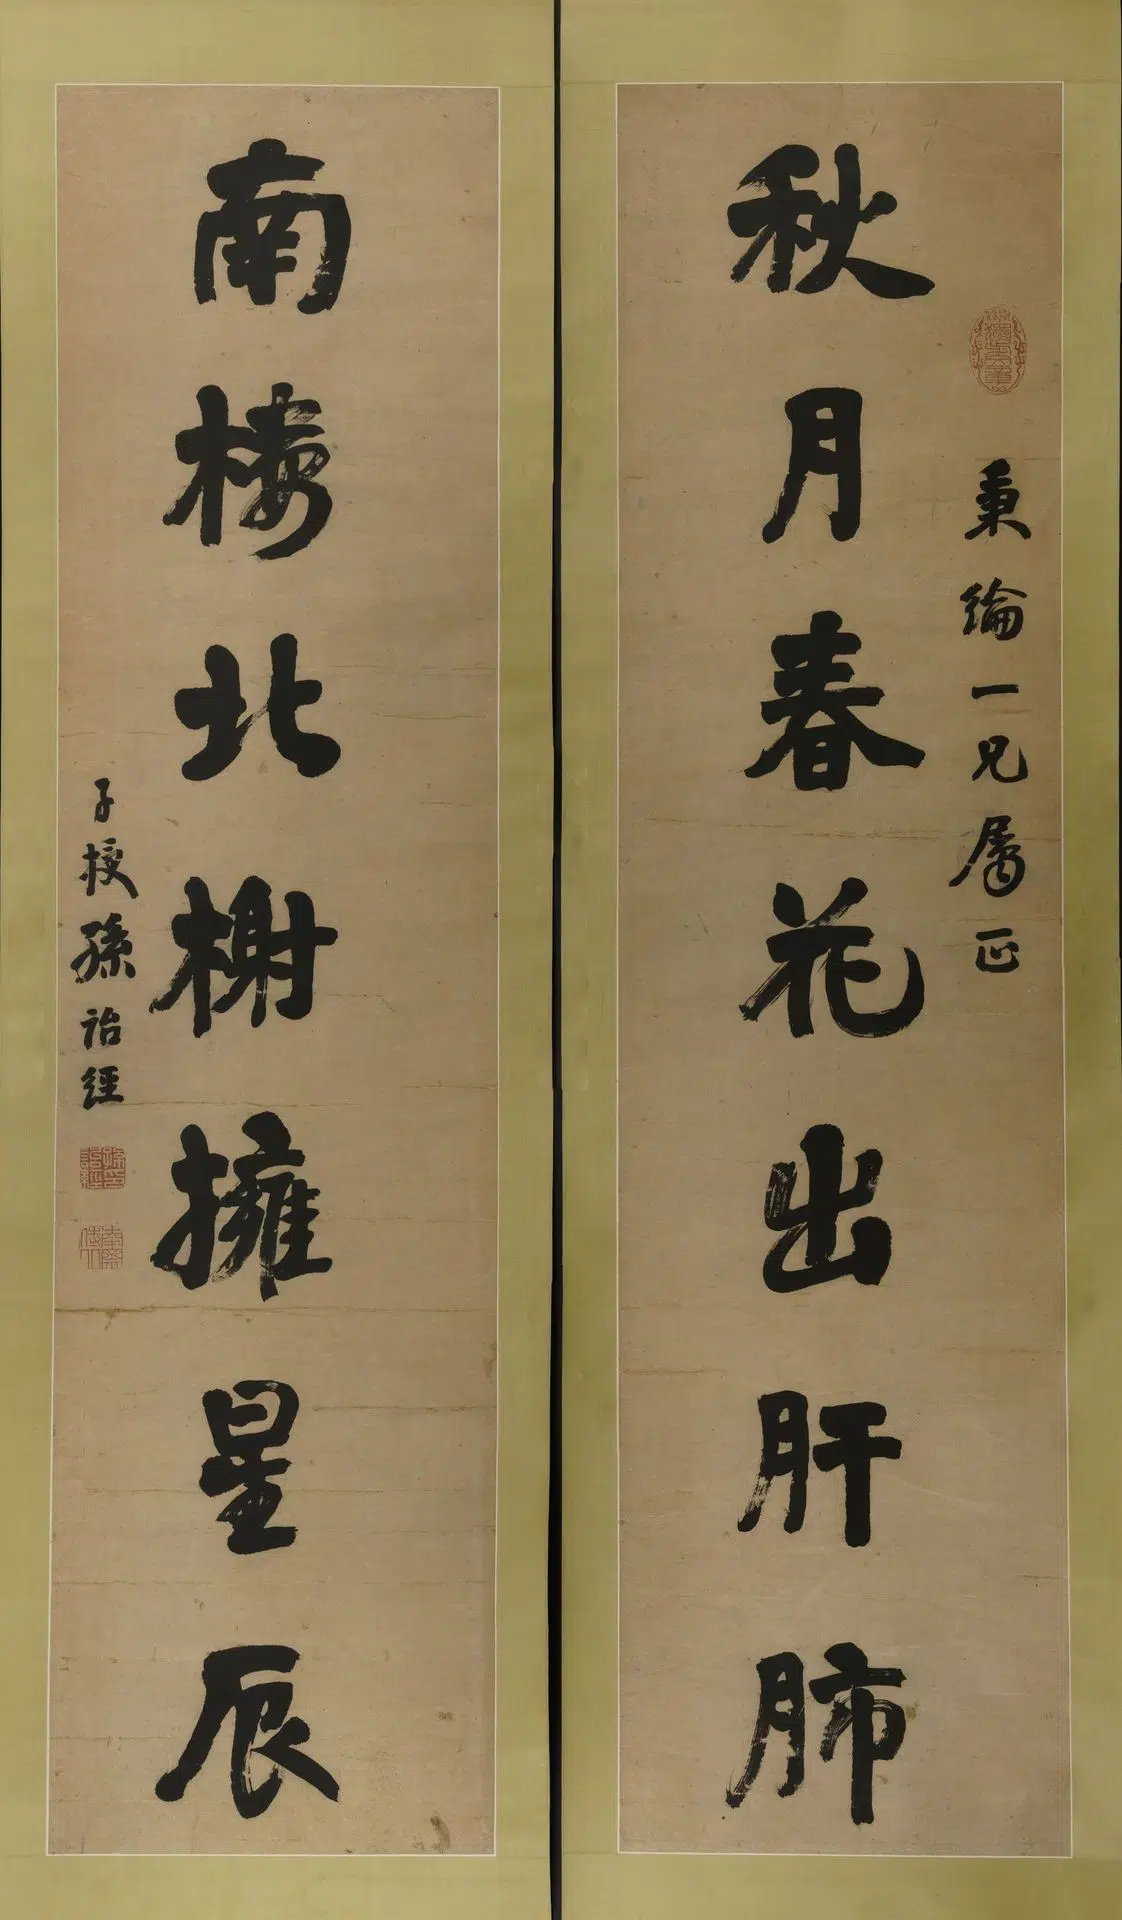 秉綸一兄屬正
秋月春花出肝肺
南樓北榭擁星辰
子授孫詒經
孫詒經印